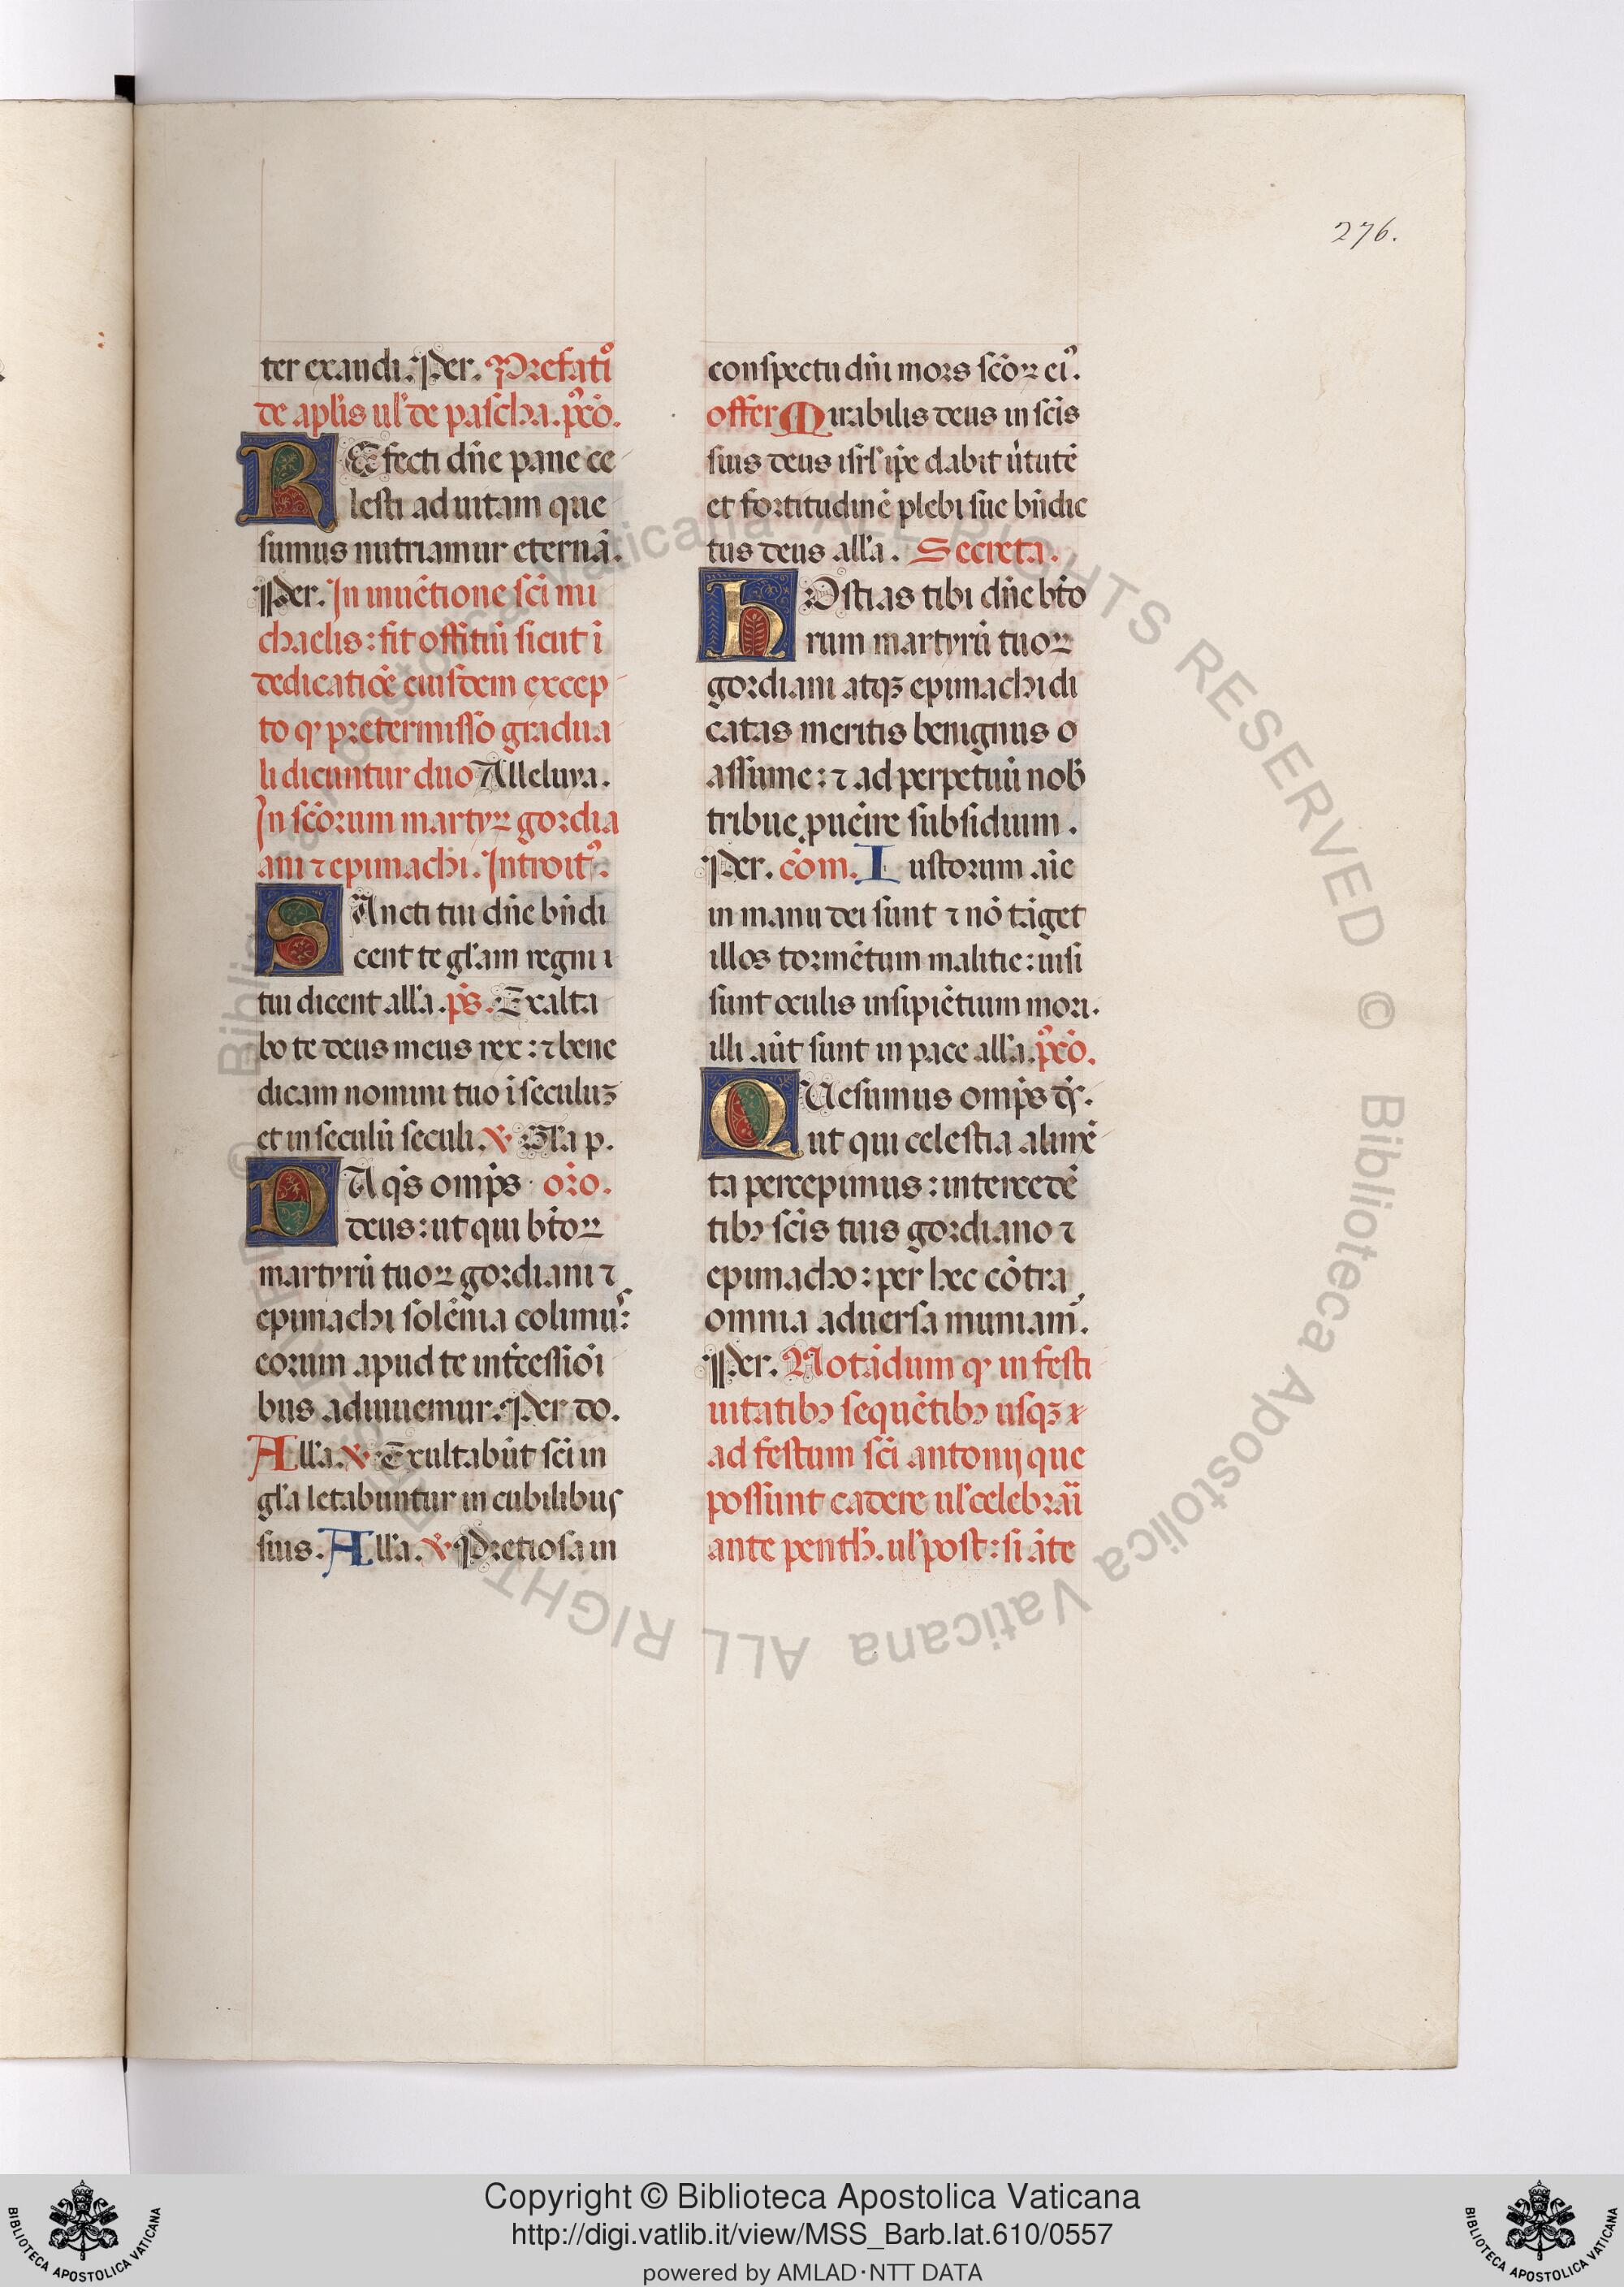 276.
ter exandi. Per. Prefatio
de aplis ul' de pascha. pꝰcō.
REfecti dn̄e pane ce
lesti ad uitam que
sumus nutriamur eternā.
Per. In inuētione sc̄i mi
chaelis: fit offitiū sicut ī
dedicatiōe eiusdem excep
to ꝙ pretermisso gradua
li dicuntur duo Alleluya.
In sc̄orum martyꝝ gordia
ani ⁊ epimachi. Introitꝰ:
SAncti tui dn̄e bn̄di
cent te gl'am regni
tui dicent all'a. ps̄. Exalta
bo te deus meus rex: ⁊ bene
dicam nomini tuo ī seculuꝫ
et in seculū seculi. ℣ Gl'a p.
DA qs̄ omp̄s orō.
deus: ut qui btōꝝ
martyrū tuoꝝ gordiani ⁊
epimachi solēnia colimuˢ:
eorum apud te int̄cessiōi
bus adiuuemur. Per do.
All'a. ℣. Exultabūt sc̄i in
gl'a letabuntur in cubilibus
suis. All'a. ℣ Pretiosa in
conspectu dn̄i mors sc̄oꝝ eiꝰ.
offer Mirabilis deus in sc̄is
suis deus isrl' ip̄e dabit ūtutē
et fortitudinē plebi sue bn̄dic
tus deus all'a. Secreta.
hOstias tibi dn̄e btō
rum martyrū tuoꝝ
gordiani atqꝫ epimachi di
catas meritis benignus o
assume: ⁊ ad perpetuū nob̄
tribue ꝓuēire subsidium.
Per. cōm. Iustorum aīe
in manu dei sunt ⁊ nō tāget
illos tormētum malitie: uisi
sunt oculis insipiētium mori.
illi aūt sunt in pace all'a. pꝰcō.
QUesumus omp̄s ds̄.
ut qui celestia alimē
ta percepimus: intercedē
tibꝫ sc̄is tuis gordiano ⁊
epimacho: per hec cōtra
omnia aduersa muniam̄.
Per. Notādum ꝙ in festi
uitatibꝫ sequētibꝫ usqꝫ
ad festum sc̄i antonij que
possunt cadere ul' celebrāi
ante penth̄. ul' post: si āte
© Biblioteca Apostolica Vaticana ALL RIGHTS RESERVED
© Biblioteca Apostolica Vaticana ALL RIGHT
Copyright © Biblioteca Apostolica Vaticana
http://digi.vatlib.it/view/MSS_Barb.lat.610/0557
powered by AMLAD·NTT DATA
BIBLIOTECA APOSTOLICA VATICANA
BIBLIOTECA APOSTOLICA VATICANA